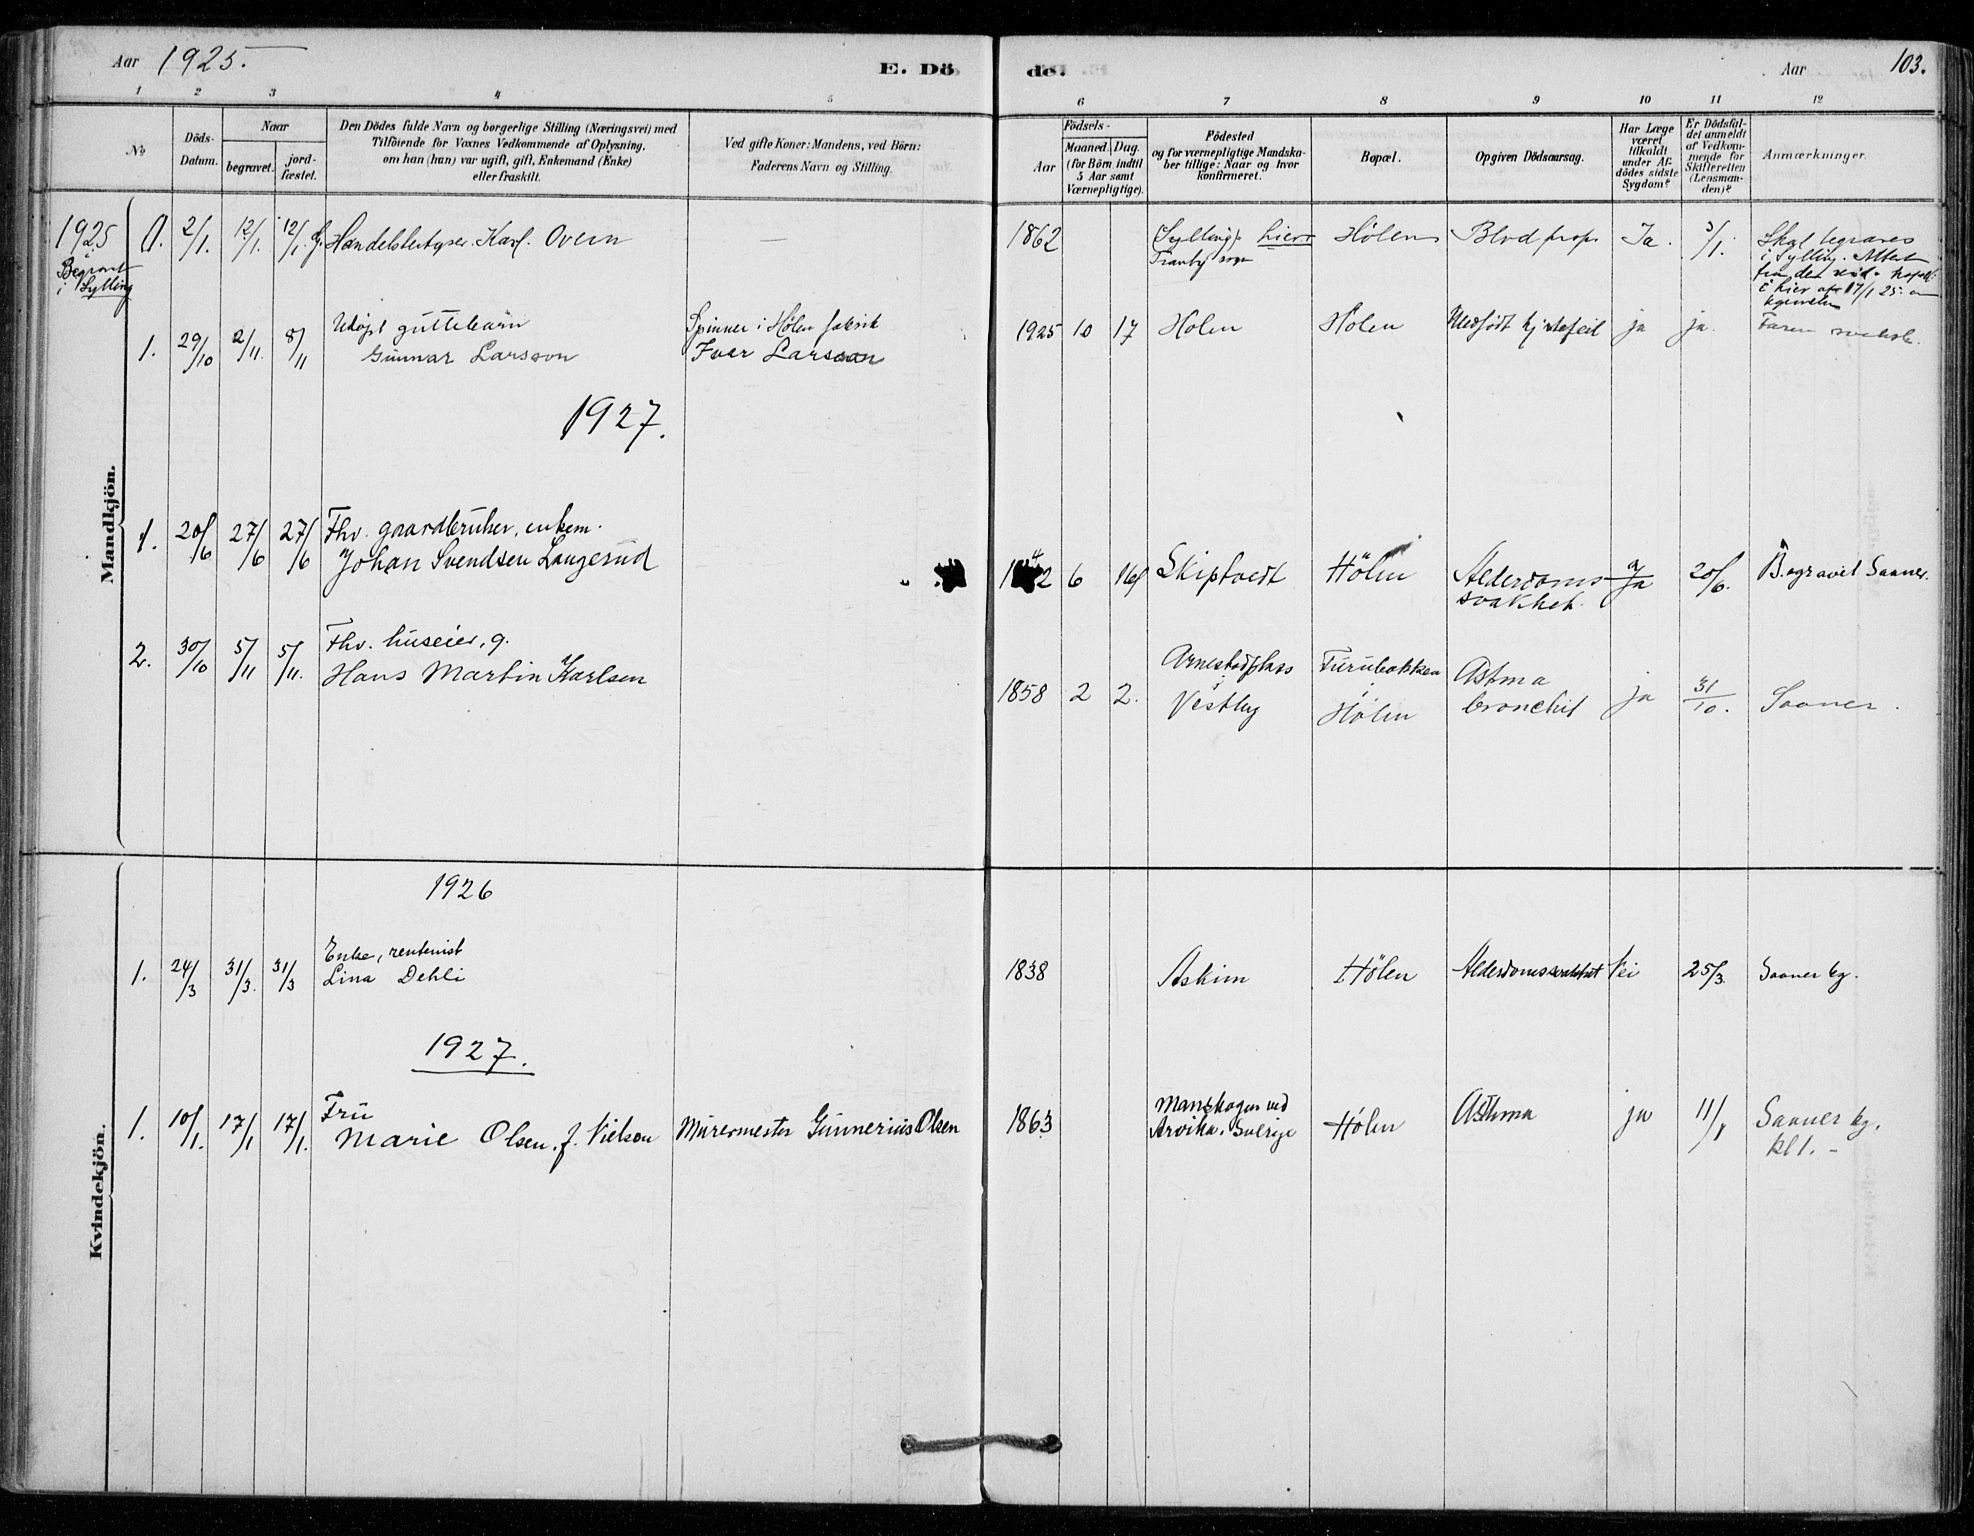 Aar 1925.
E. Dö
de.
Aar
103.
1 2 3 4 5
6 7 8 9 10 11 12
No
Döds-
Datum.
Naar
begravet.
jord-
fæstet.
Den Dödes fulde Navn og borgerlige Stilling (Næringsvei) med
Tilföiende for Voxnes Vedkommende af Oplysning,
om han (hun) var ugift, gift, Enkemand (Enke)
eller fraskilt.
Ved gifte Koner: Mandens, ved Börn:
Faderens Navn og Stilling.
Födsels-
Aar
Maaned. Dag.
(for Börn indtil
5 Aar samt
Værnepligtige).
Födested
og for værnepligtige Mandska-
ber tillige: Naar og hvor
konfirmeret.
Bopæl.
Opgiven Dödsaarsag.
Har Læge
været
tilkaldt
under Af-
dödes sidste
Sygdom?
Er Dödsfal-
det anmeldt
af Vedkom-
mende for
Skifteretten
(Lensman-
den)?
Anmærkninger.
Mandkjön.
1925
Begravet
i Sylling
0. 2/1. 12/1. 12/1. Handelsbestyrer Karl Overn — 1862 Sylling Lier Hölen Blodprop Ja. 3/1. Skal begraves
Tranby sogn
i Sylling. Attest
i Lier 17/1 25.
1. 29/10 2/11. 8/11 Udöpt guttebarn
Gunnar Larsson
Spinner i Hölen fabrik
Ivar Larsson
1925 10 17 Hölen Hölen Medfödt hjertefeil ja ja.
1927.
1. 20/6 27/6 27/6 Fhv. gaardbruker, enkem.
Johan Svendsen Langerud
6 16 Skiptvedt Hölen Alderdoms
svakhet.
Ja 20/6. Begravet Saaner.
2. 30/10 5/11 5/11. Fhv. huseier, g.
Hans Martin Karlsen
1858 2 2. Arnestadplass
i
Vestby
Furubakken
Hölen
Astma
bronchit
ja 31/10. Saaner.
Kvindekjön.
1926
1. 24/3 31/3. 31/3 Enke, rentenist
Lina Dehli
1838 Askim Hölen Alderdomssvakhet Nei 25/3. Saaner kg.
1927.
1. 10/1. 17/1 17/1. Fru
Marie Olsen f. Nielson Murermester Gunnerius Olsen
1863 Manskogen ved
Arvika, Sverige
Hölen Asthma ja 11/1 Saaner kg.
kl 1. –